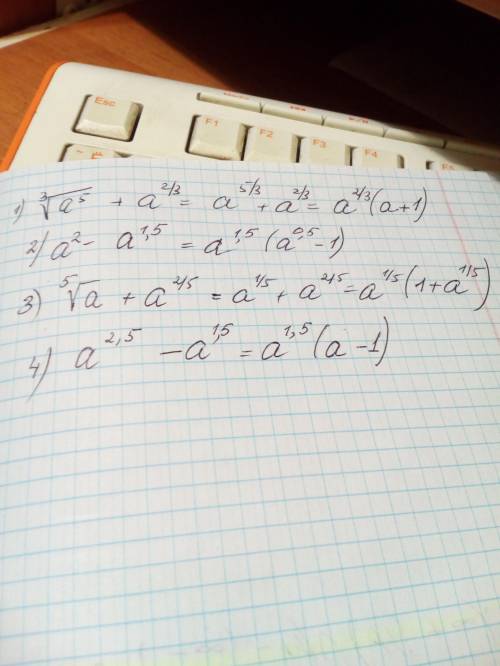 Esc
F1
F2
F3
F4
1) ∛a⁵ + a^2/3 = a^5/3 + a^2/3 = a^2/3 (a+1)
2) a² - a^1,5 = a^1,5 (a^0,5 - 1)
3) ⁵√a + a^2/5 = a^1/5 + a^2/5 = a^1/5 (1 + a^1/5)
4) a^2,5 - a^1,5 = a^1,5 (a - 1)